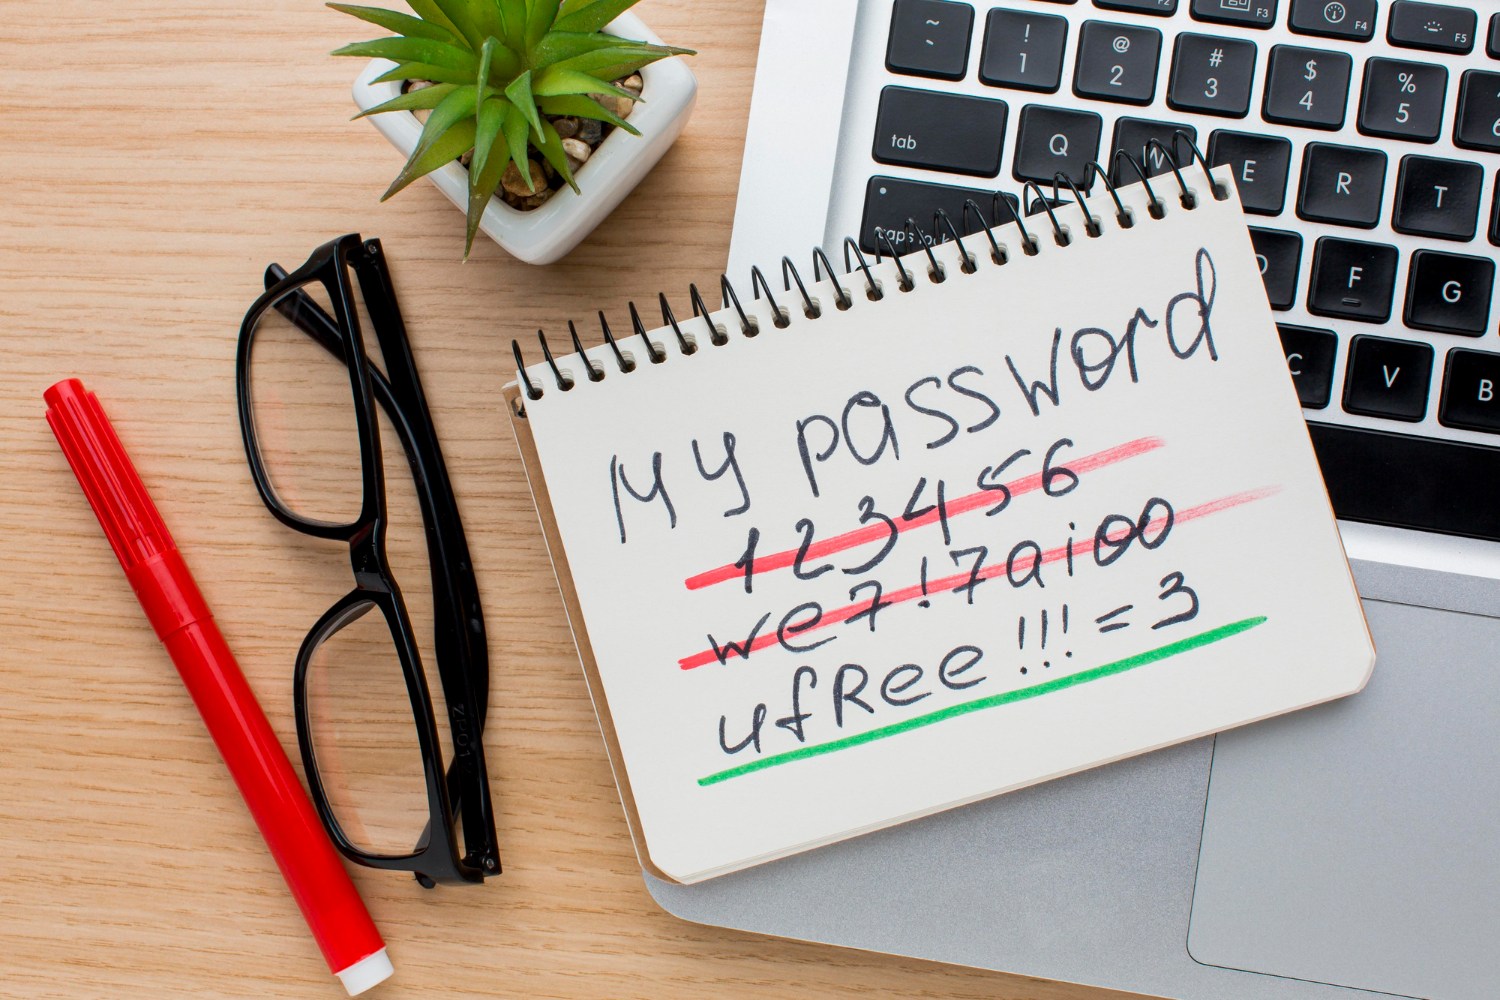 My password
123456
we7!7aioo
ufRee!!!=3
~
`
! 1
@ 2
# 3
$ 4
% 5
F2
F3
F4
F5
tab
Q
W
E
R
T
caps lock
D
F
G
C
V
B